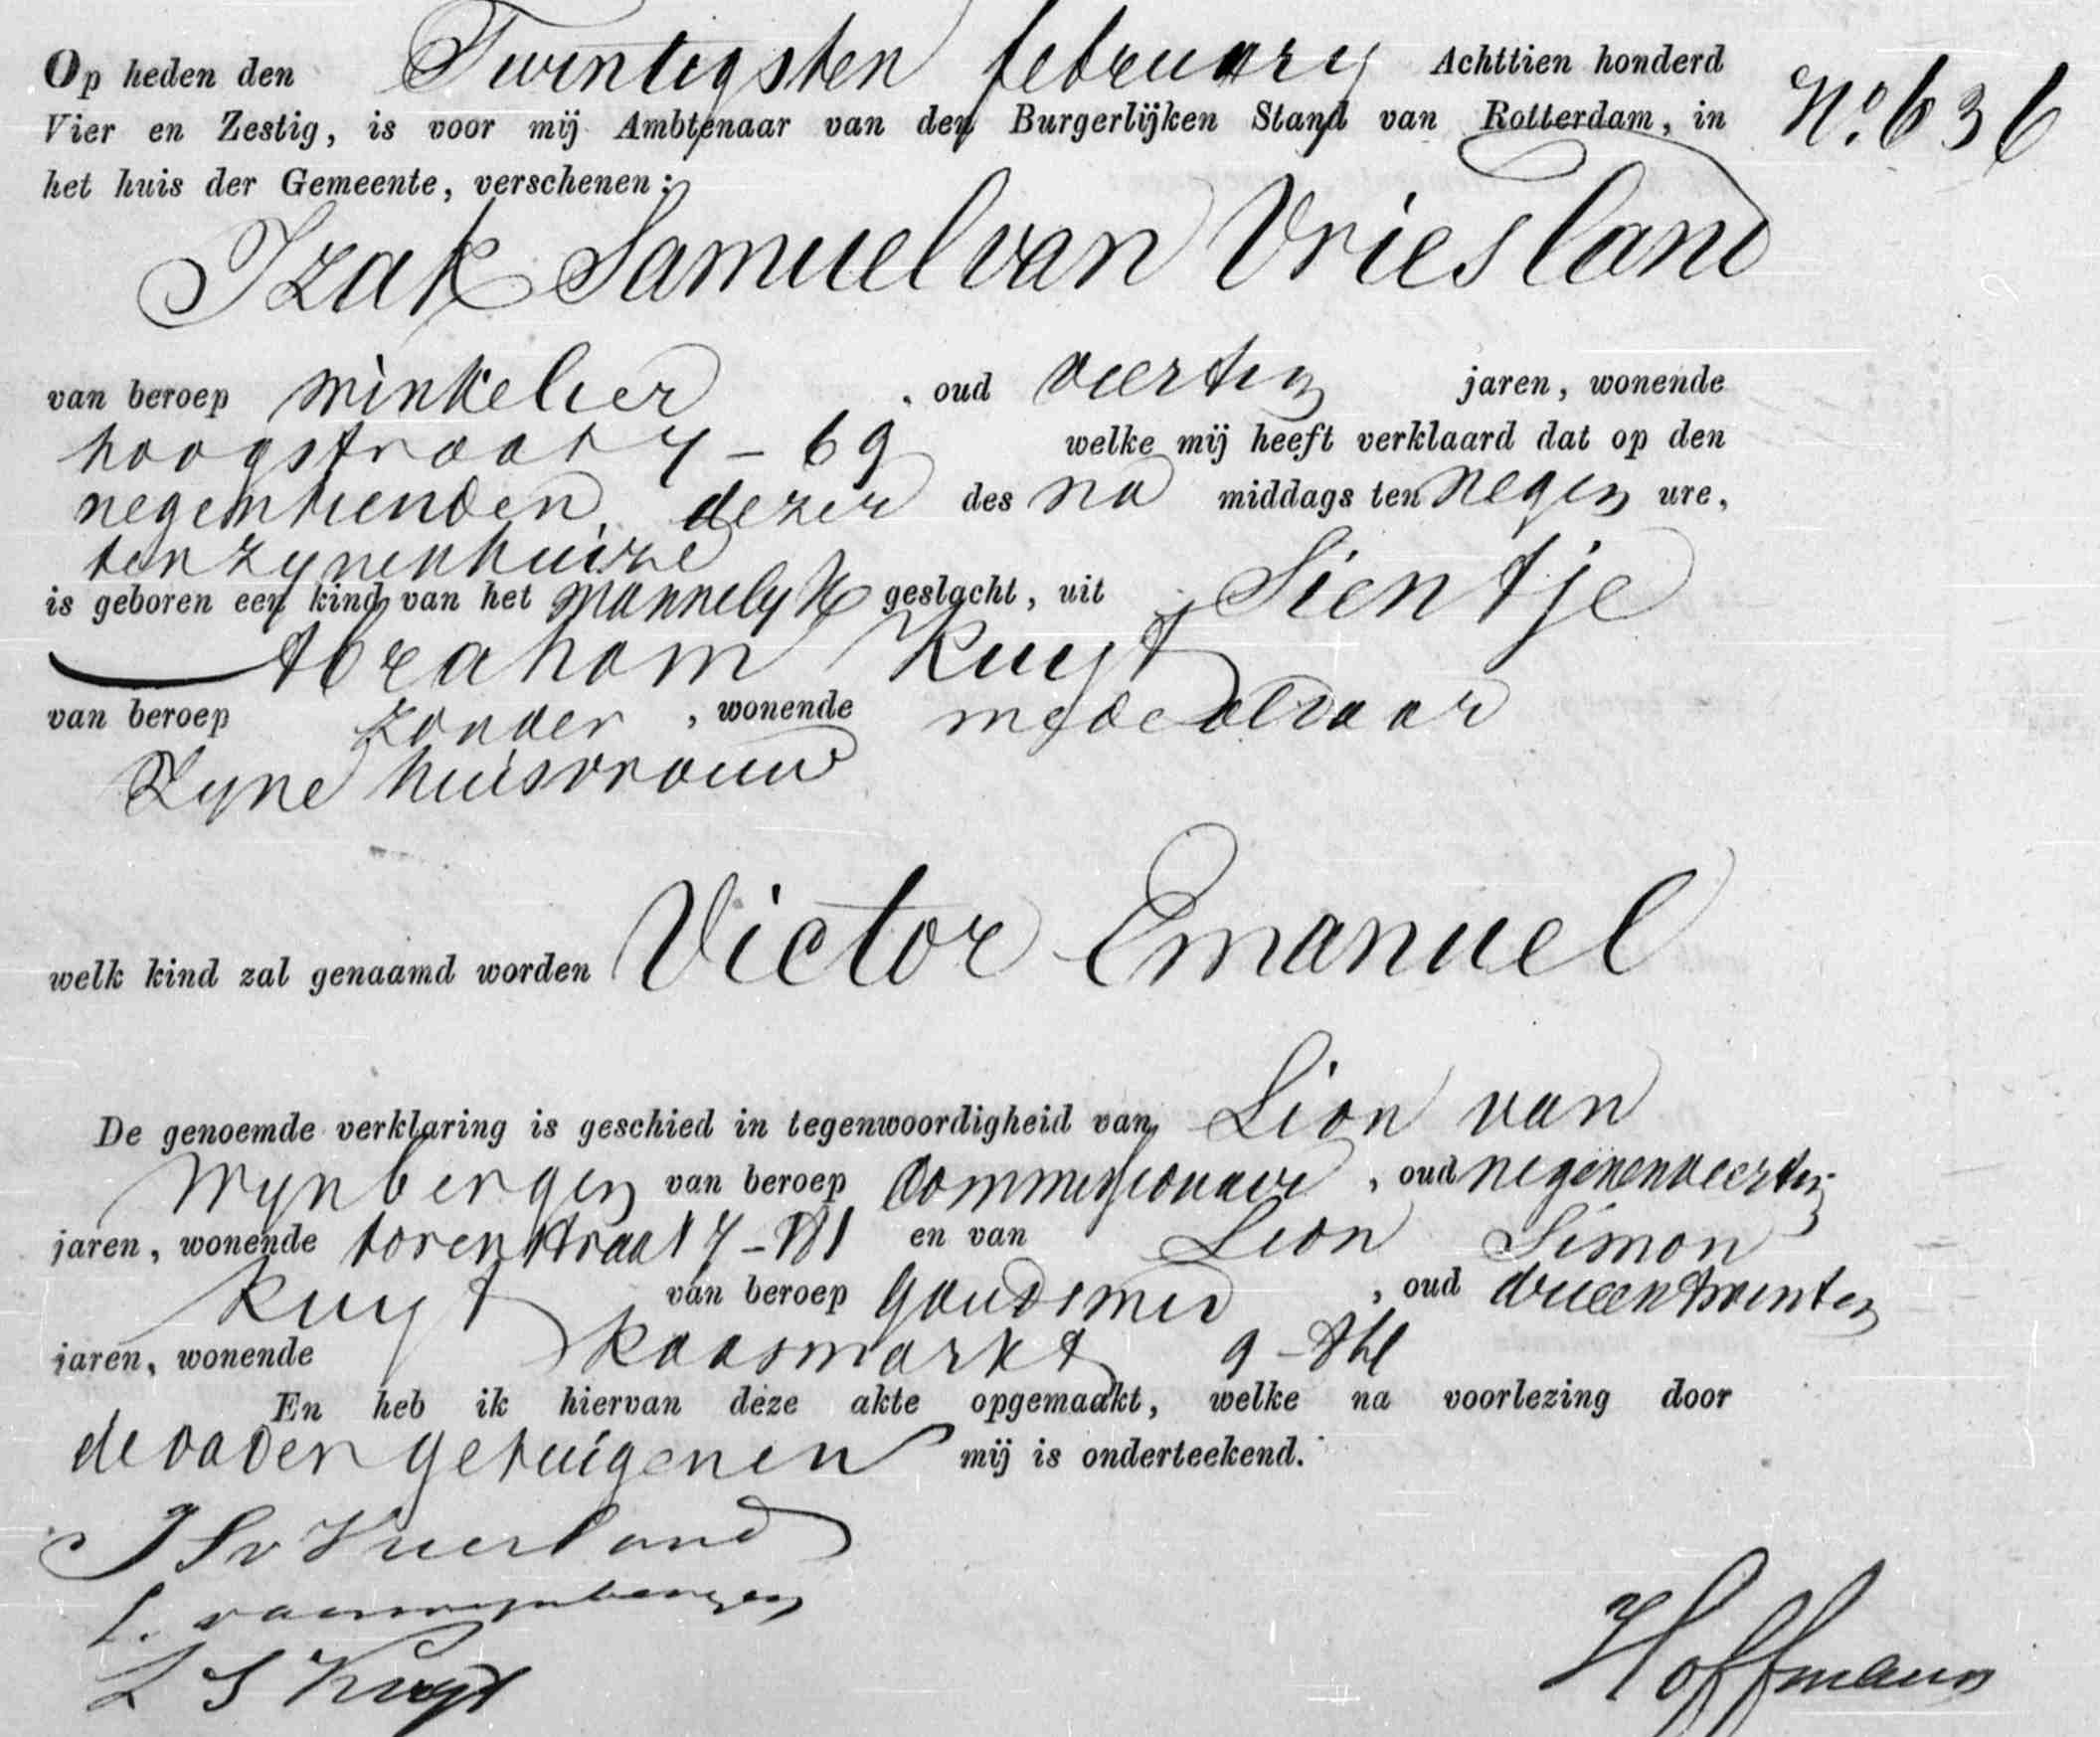 Op heden den Twintigsten february Achttien honderd
Nº 636
Vier en Zestig, is voor mij Ambtenaar van den Burgerlijken Stand van Rotterdam, in
het huis der Gemeente, verschenen:
Izak Samuel van Vriesland
van beroep winkelier, oud veertig jaren, wonende
hoogstraat 4 - 69 welke mij heeft verklaard dat op den
negentienden dezer des na middags ten negen ure,
ten zynen huize
is geboren een kind van het mannelyk geslacht, uit Sientje
Abraham Kuyt
van beroep zonder, wonende mede aldaar
Zyne huisvrouw
welk kind zal genaamd worden Victor Emanuel
De genoemde verklaring is geschied in tegenwoordigheid van Lion van
Wynbergen van beroep Commissionair, oud negenenveertig
jaren, wonende torenstraat 4 - en van Lion Simon
Kuyt van beroep goudsmid, oud drieentwintig
jaren, wonende Kaasmarkt 9 -
En heb ik hiervan deze akte opgemaakt, welke na voorlezing door
de vader getuigen en mij is onderteekend.
I S v Vriesland
L. van wynbergen
L S Kuyt
Hoffmann